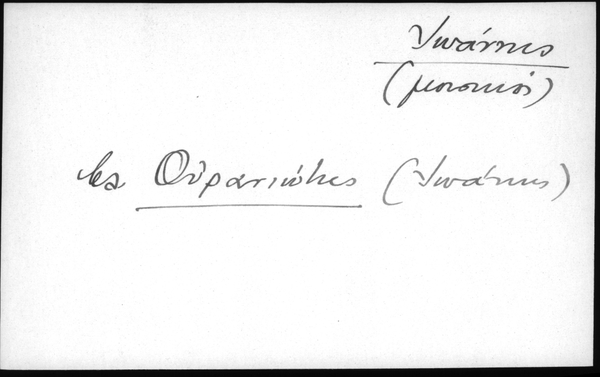 Ἰωάννης
(μουσικός)
βλ Οὐρανιώτης (Ἰωάννης)